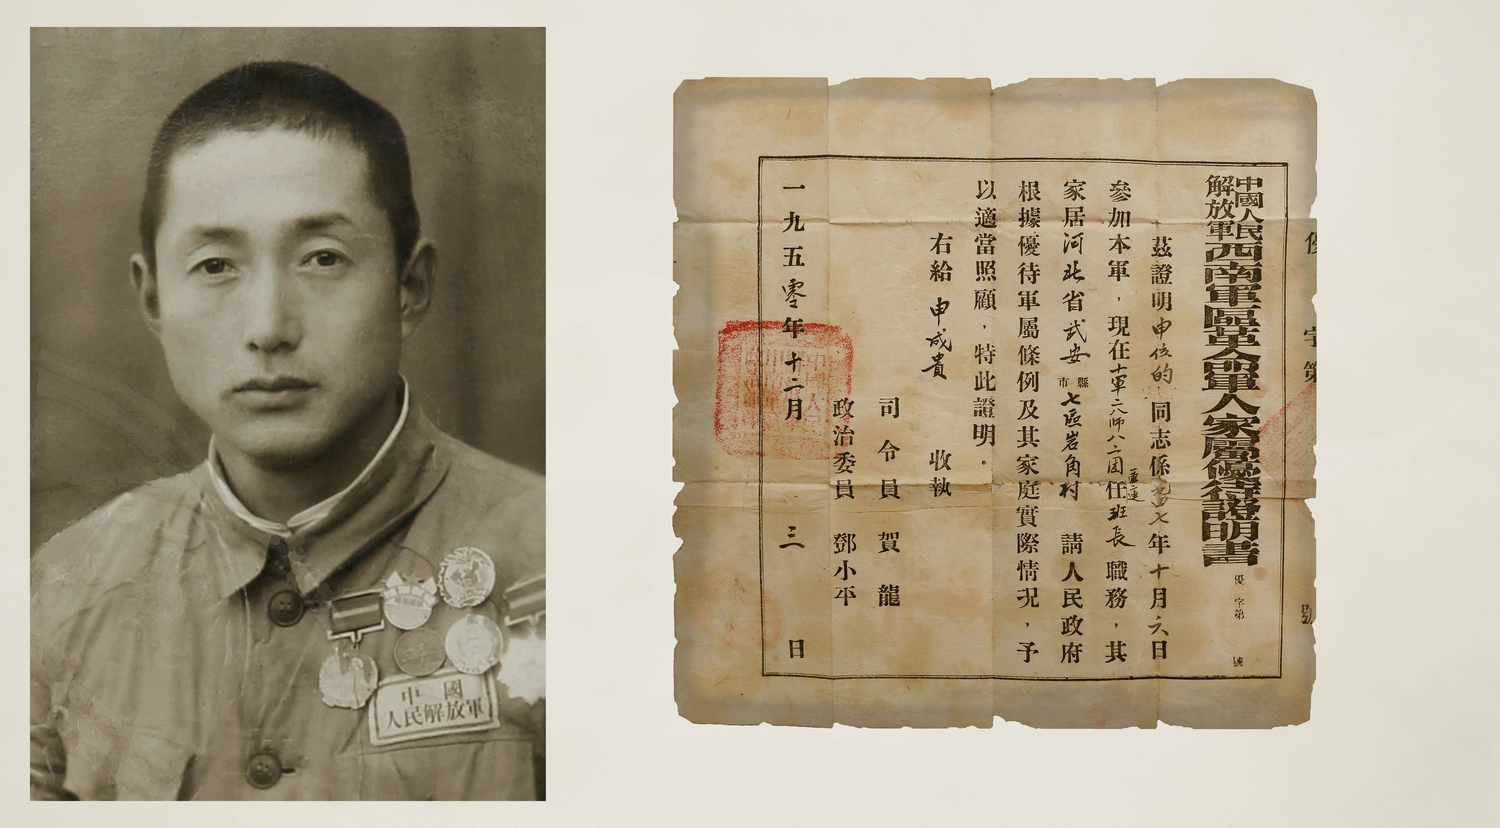 中國
人民解放軍
中國人民
解放軍
西南軍區革命軍人家屬優待證明書
優 字第 號
茲證明申位的同志係一九四七年十月六日
參加本軍，現在十軍二八師八二團
直連
任班長職務，其
家居河北省武安
市縣
七區岩角村 請人民政府
根據優待軍屬條例及其家庭實際情況，予
以適當照顧，特此證明。
右給 申成貴 收執
司令員 賀龍
政治委員 鄧小平
一九五零年十二月 三 日
優 字第 號